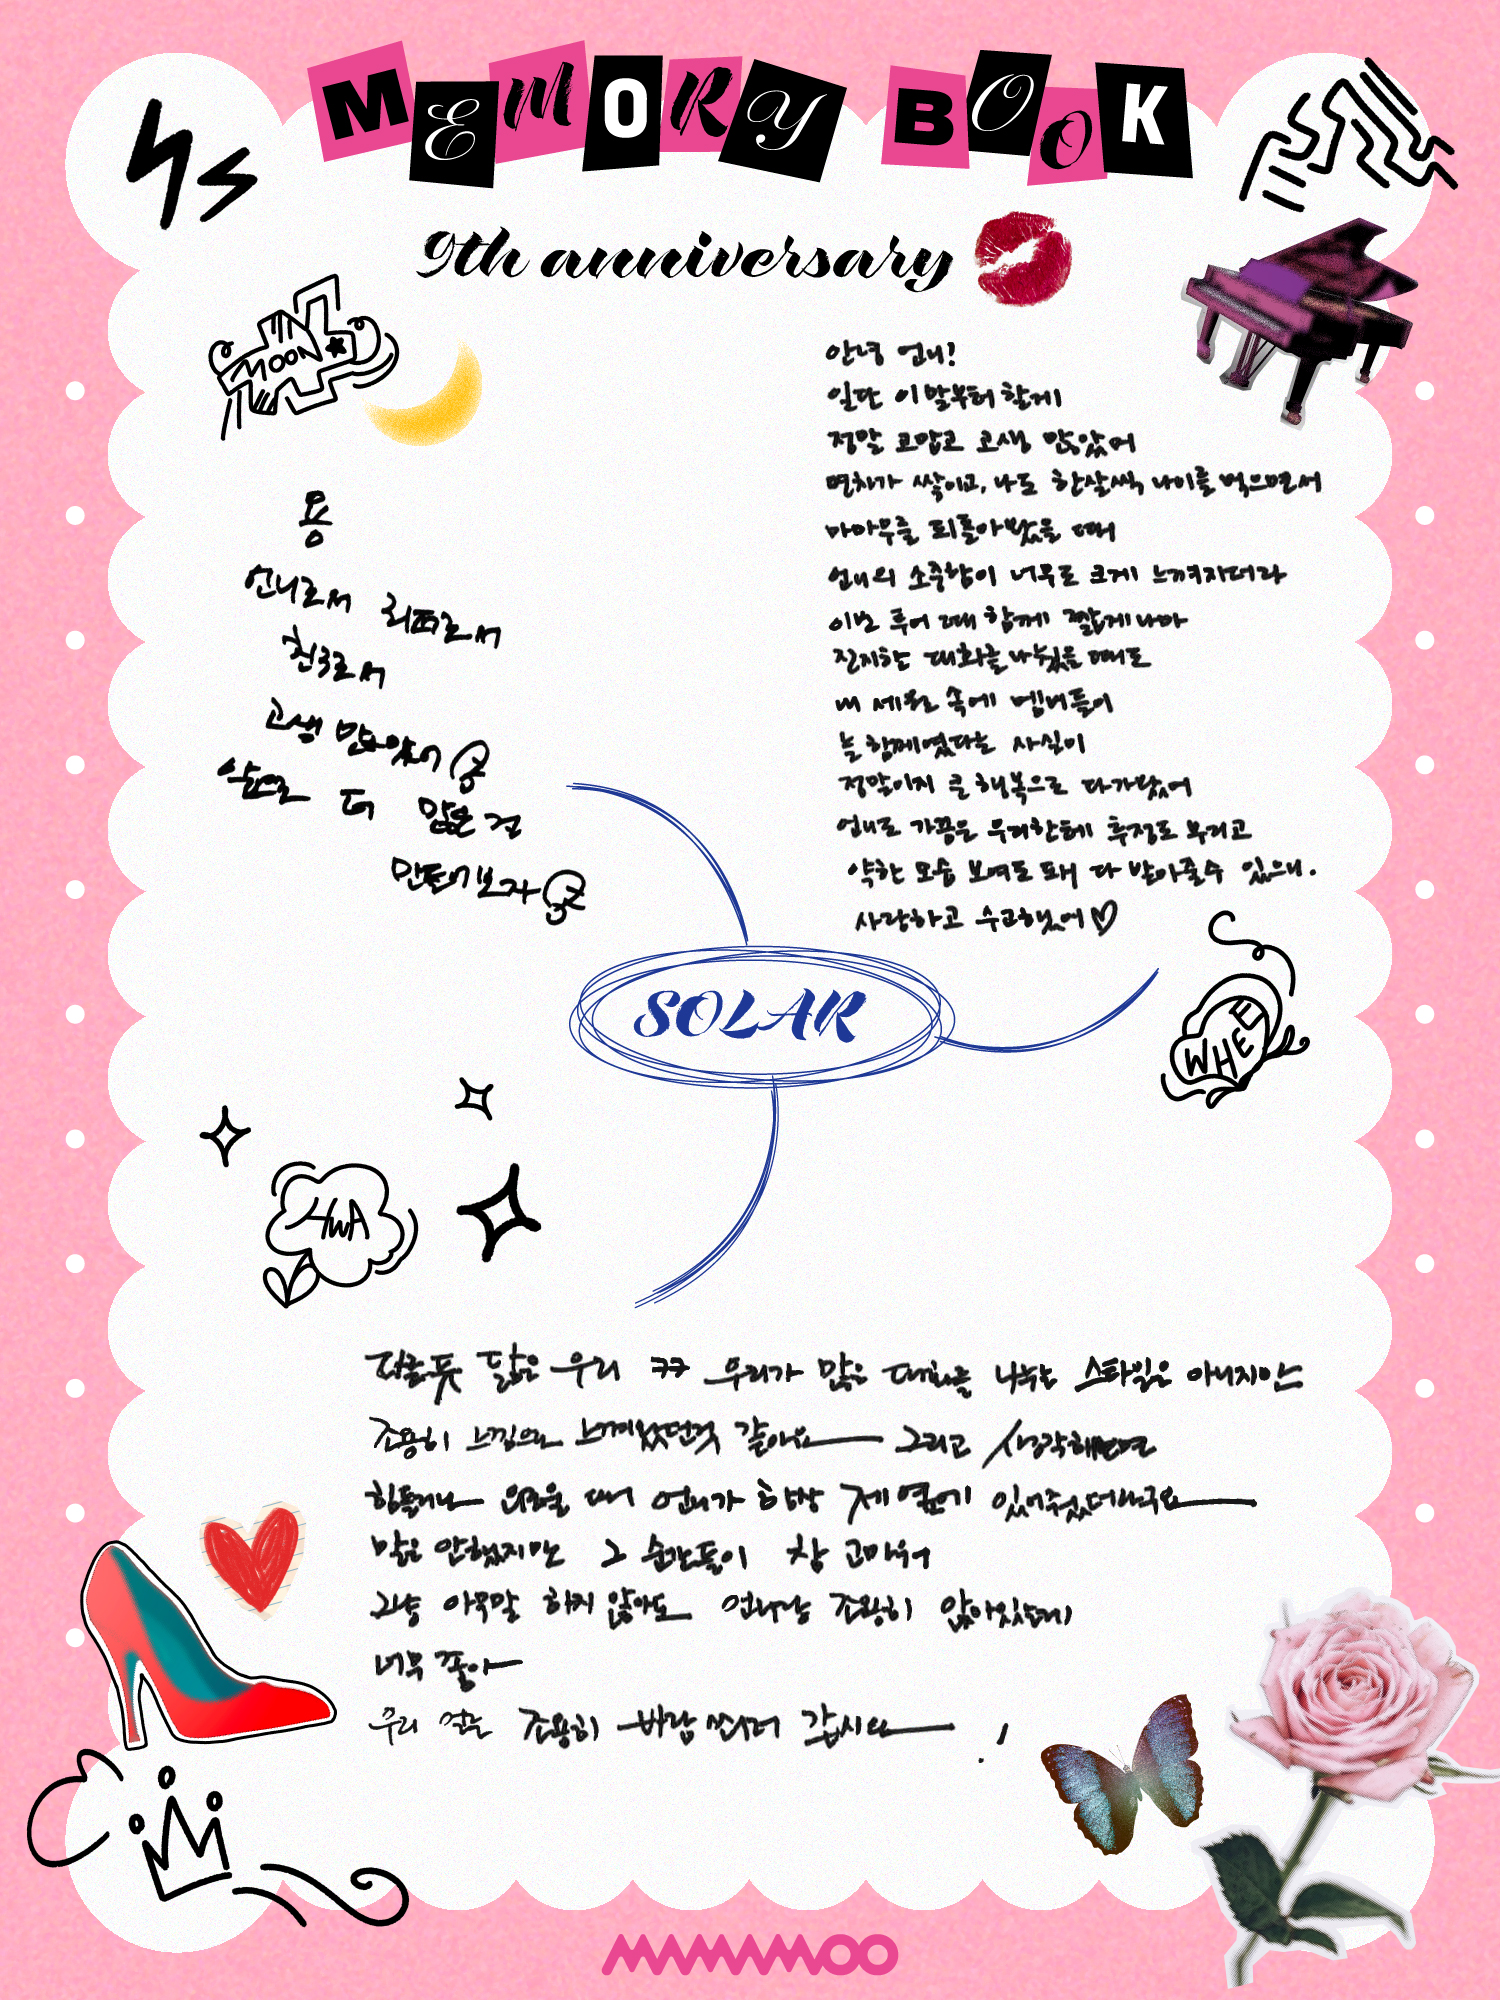 MEMORY BOOK
9th anniversary
MOON
용
언니로서 리더로서
친구로서
고생 많았어
앞으로 더 많은 걸
만들어보자
안녕 언니!
일단 이 말부터 할게
정말 고맙고 고생 많았어
연차가 쌓이고, 나도 한살씩 나이를 먹으면서
마마무를 되돌아봤을 때
언니의 소중함이 너무도 크게 느껴지더라
이번 투어 때 함께 짧게나마
진지한 대화를 나눴을 때도
내 세월 속에 멤버들이
늘 함께였다는 사실이
정말이지 큰 행복으로 다가왔어
언니도 가끔은 우리한테 투정도 부리고
약한 모습 보여도 돼 다 받아줄수 있으니.
사랑하고 수고했어♡
SOLAR
WHEE
HWA
다른듯 닮은 우리 ㅋㅋ 우리가 많은 대화를 나누는 스타일은 아니지만
조용히 느낌으로 느껴왔던것 같아요 그리고 생각해보면
힘들거나 외로울 때 언니가 항상 제 옆에 있어줬더라구요
말은 안했지만 그 순간들이 참 고마워
그냥 아무말 하지 않아도 언니랑 조용히 앉아있는게
너무 좋아
우리 오늘 조용히 바람 쐬러 갑시다 !
MAMAMOO